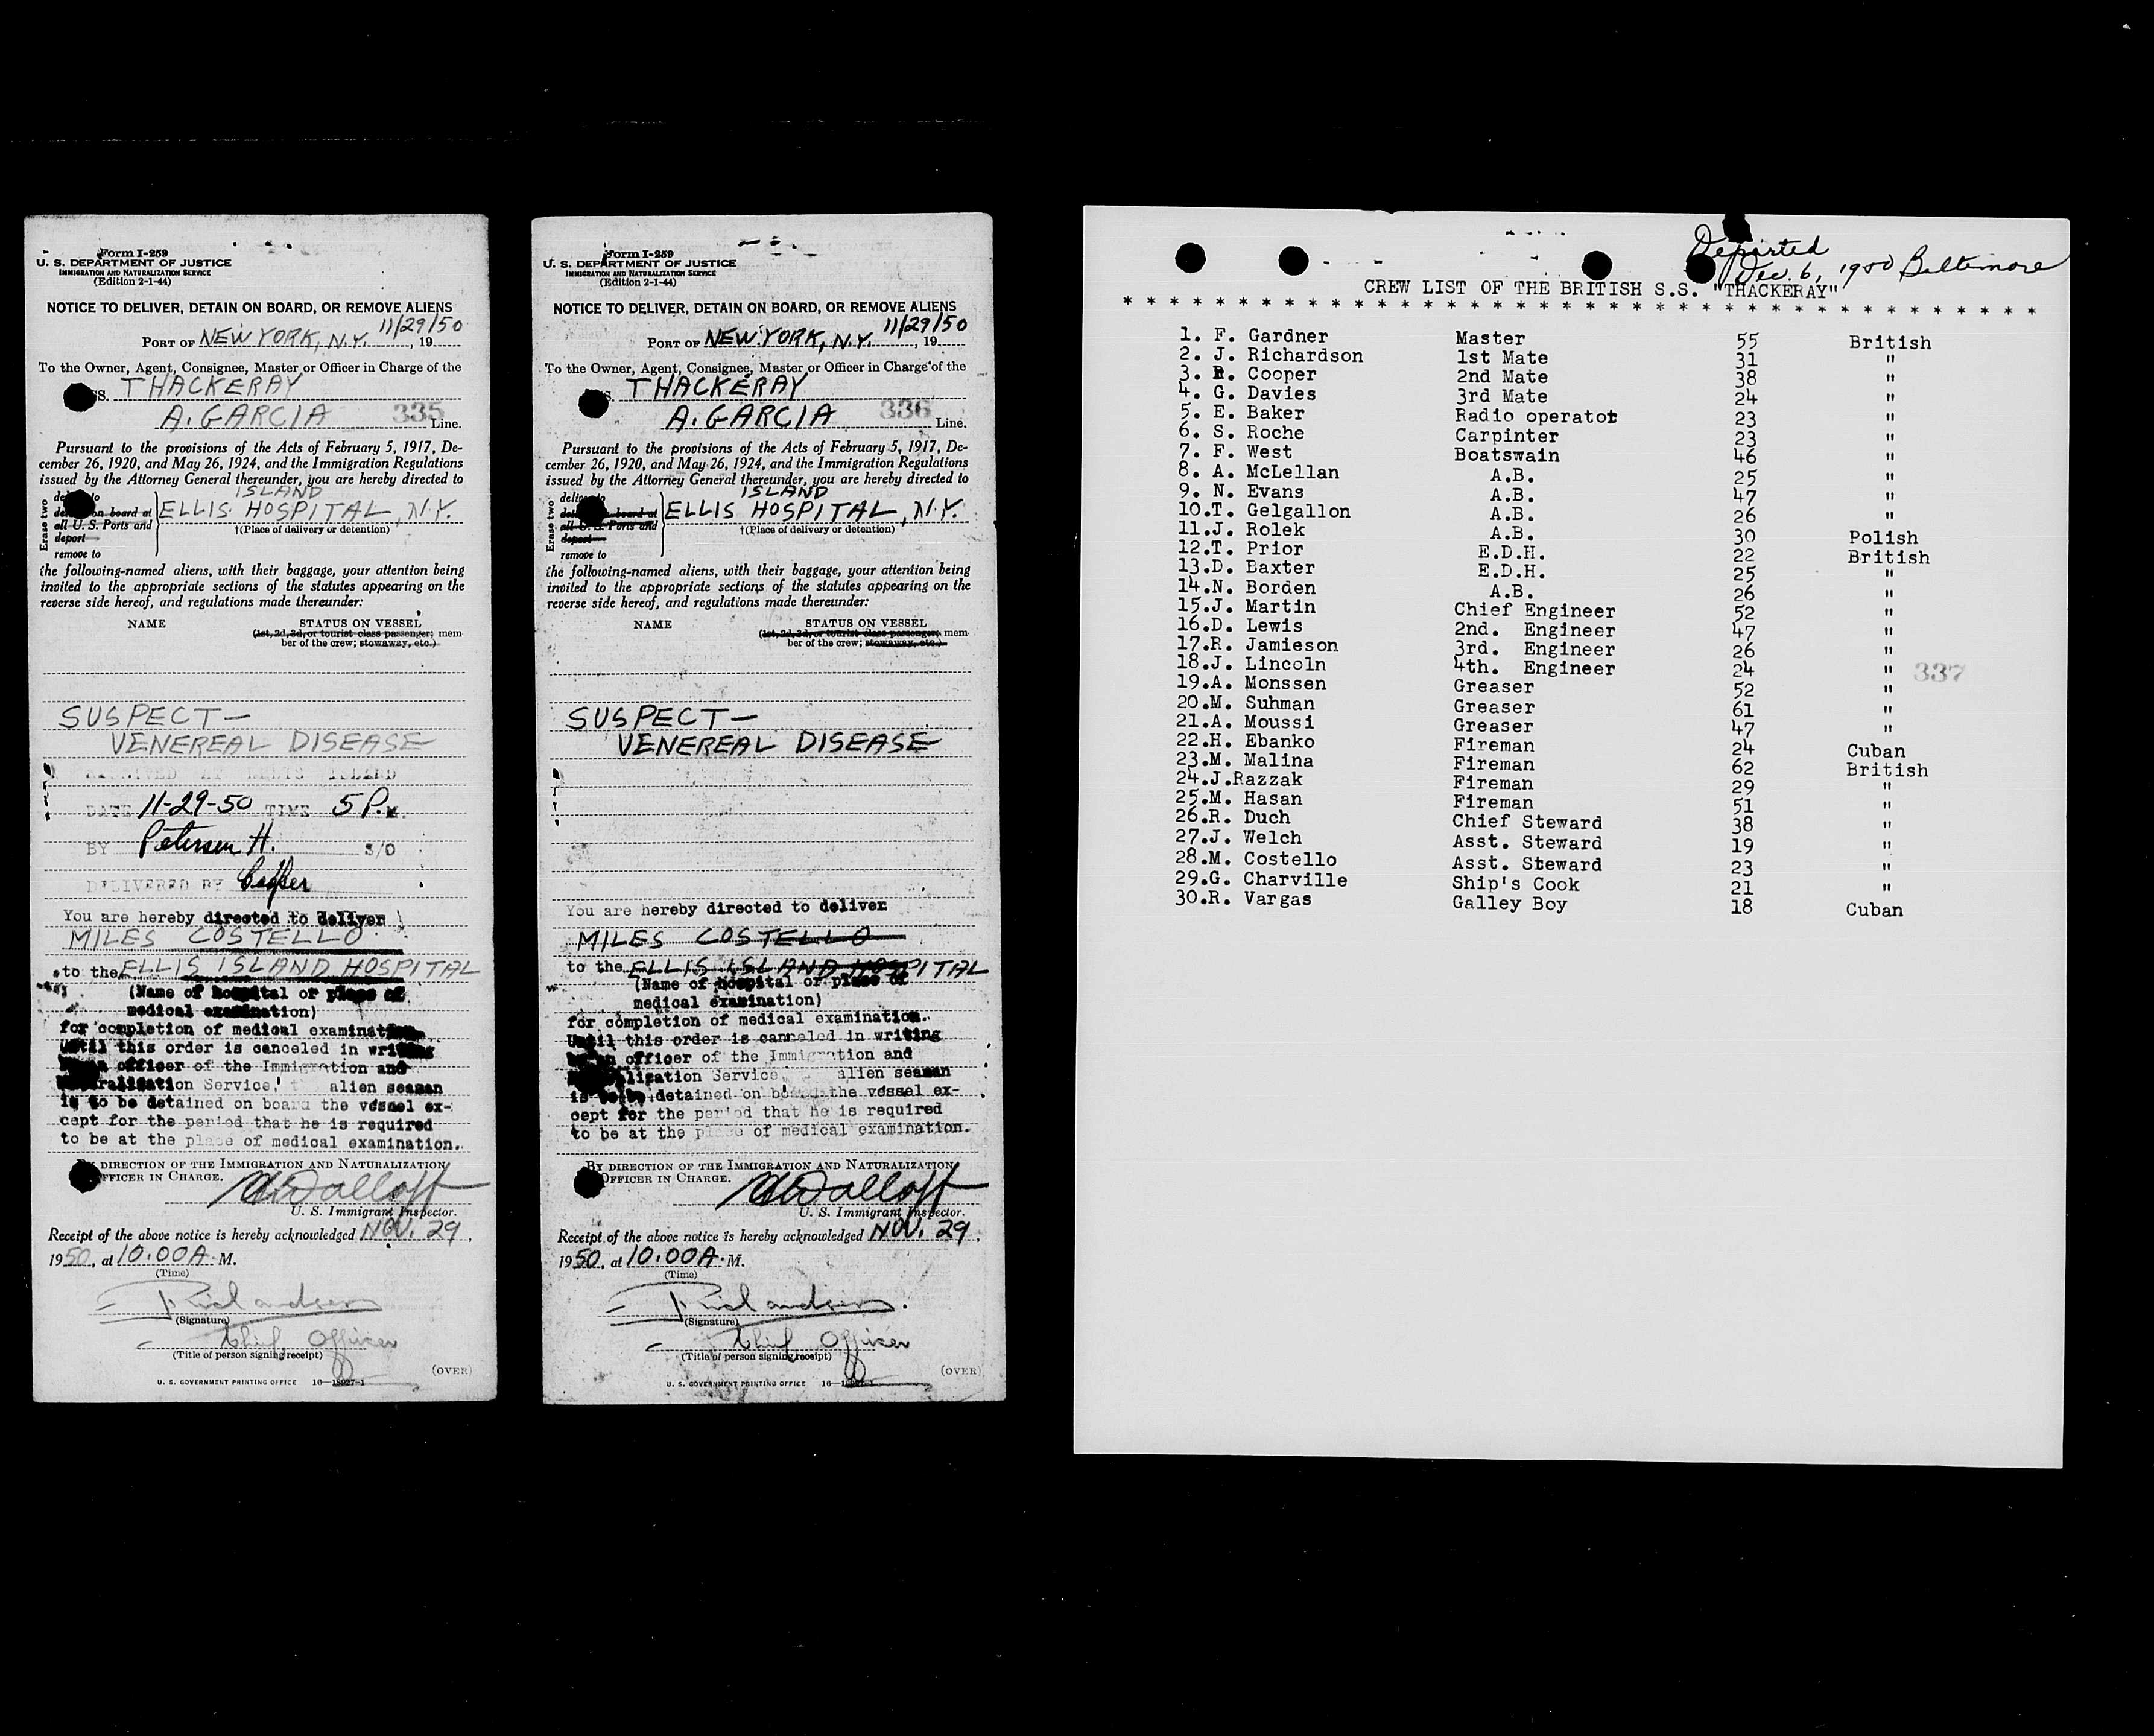 Form I-259
U. S. DEPARTMENT OF JUSTICE
IMMIGRATION AND NATURALIZATION SERVICE
(Edition 2-1-44)
NOTICE TO DELIVER, DETAIN ON BOARD, OR REMOVE ALIENS
11/29/50
PORT OF NEW YORK, N.Y. , 19
To the Owner, Agent, Consignee, Master or Officer in Charge of the
SS. THACKERAY
A. GARCIA 335 Line.
Pursuant to the provisions of the Acts of February 5, 1917, De-
cember 26, 1920, and May 26, 1924, and the Immigration Regulations
issued by the Attorney General thereunder, you are hereby directed to
ISLAND
Erase two
to
on board at ELLIS HOSPITAL, N.Y.
all U. S. Ports and †(Place of delivery or detention)
deport
remove to
the following-named aliens, with their baggage, your attention being
invited to the appropriate sections of the statutes appearing on the
reverse side hereof, and regulations made thereunder:
NAME STATUS ON VESSEL
(1st, 2d, 3d, or tourist class passenger; mem-
ber of the crew; stowaway, etc.)
SUSPECT—
VENEREAL DISEASE
RECEIVED AT ELLIS ISLAND
DATE 11-29-50 TIME 5 P.
BY Petersen H. S/O
DELIVERED BY
You are hereby directed to deliver
MILES COSTELLO
to the ELLIS ISLAND HOSPITAL
(Name of hospital or place of
medical examination)
for completion of medical examination.
Until this order is canceled in writing
officer of the Immigration and
Naturalization Service, alien seaman
is to be detained on board the vessel ex-
cept for the period that he is required
to be at the place of medical examination.
BY DIRECTION OF THE IMMIGRATION AND NATURALIZATION
OFFICER IN CHARGE.
U. S. Immigrant Inspector.
Receipt of the above notice is hereby acknowledged NOV. 29,
1950, at 10:00 A. M.
(Time)
J. Richardson
(Signature)
Chief Officer
(Title of person signing receipt)
(OVER)
U. S. GOVERNMENT PRINTING OFFICE 16—18927-1
Form I-259
U. S. DEPARTMENT OF JUSTICE
IMMIGRATION AND NATURALIZATION SERVICE
(Edition 2-1-44)
NOTICE TO DELIVER, DETAIN ON BOARD, OR REMOVE ALIENS
11/29/50
PORT OF NEW YORK, N.Y. , 19
To the Owner, Agent, Consignee, Master or Officer in Charge of the
THACKERAY
A. GARCIA 336 Line.
Pursuant to the provisions of the Acts of February 5, 1917, De-
cember 26, 1920, and May 26, 1924, and the Immigration Regulations
issued by the Attorney General thereunder, you are hereby directed to
ISLAND
Erase two
deliver to
on board at ELLIS HOSPITAL, N.Y.
all U. S. Ports and †(Place of delivery or detention)
deport
remove to
the following-named aliens, with their baggage, your attention being
invited to the appropriate sections of the statutes appearing on the
reverse side hereof, and regulations made thereunder:
NAME STATUS ON VESSEL
(1st, 2d, 3d, or tourist class passenger; mem-
ber of the crew; stowaway, etc.)
SUSPECT—
VENEREAL DISEASE
You are hereby directed to deliver
MILES COSTELLO
to the ELLIS ISLAND HOSPITAL
(Name of hospital or place of
medical examination)
for completion of medical examination.
Until this order is canceled in writing
officer of the Immigration and
Naturalization Service, alien seaman
is to be detained on board the vessel ex-
cept for the period that he is required
to be at the place of medical examination.
BY DIRECTION OF THE IMMIGRATION AND NATURALIZATION
OFFICER IN CHARGE.
U. S. Immigrant Inspector.
Receipt of the above notice is hereby acknowledged NOV. 29,
1950, at 10:00 A. M.
(Time)
J. Richardson
(Signature)
Chief Officer
(Title of person signing receipt)
(OVER)
U. S. GOVERNMENT PRINTING OFFICE 16—18927-1
Departed
Dec. 6, 1950 Baltimore
CREW LIST OF THE BRITISH S.S. "THACKERAY"
* * * * * * * * * * * * * * * * * * * * * * * * * * * * * * * * * * * * * * * * * * * *
1. F. Gardner Master 55 British
2. J. Richardson 1st Mate 31 "
3. R. Cooper 2nd Mate 38 "
4. G. Davies 3rd Mate 24 "
5. E. Baker Radio operator 23 "
6. S. Roche Carpinter 23 "
7. F. West Boatswain 46 "
8. A. McLellan A.B. 25 "
9. N. Evans A.B. 47 "
10.T. Gelgallon A.B. 26 "
11.J. Rolek A.B. 30 Polish
12.T. Prior E.D.H. 22 British
13.D. Baxter E.D.H. 25 "
14.N. Borden A.B. 26 "
15.J. Martin Chief Engineer 52 "
16.D. Lewis 2nd. Engineer 47 "
17.R. Jamieson 3rd. Engineer 26 "
18.J. Lincoln 4th. Engineer 24 " 337
19.A. Monssen Greaser 52 "
20.M. Suhman Greaser 61 "
21.A. Moussi Greaser 47 "
22.H. Ebanko Fireman 24 Cuban
23.M. Malina Fireman 62 British
24.J.Razzak Fireman 29 "
25.M. Hasan Fireman 51 "
26.R. Duch Chief Steward 38 "
27.J. Welch Asst. Steward 19 "
28.M. Costello Asst. Steward 23 "
29.G. Charville Ship's Cook 21 "
30.R. Vargas Galley Boy 18 Cuban